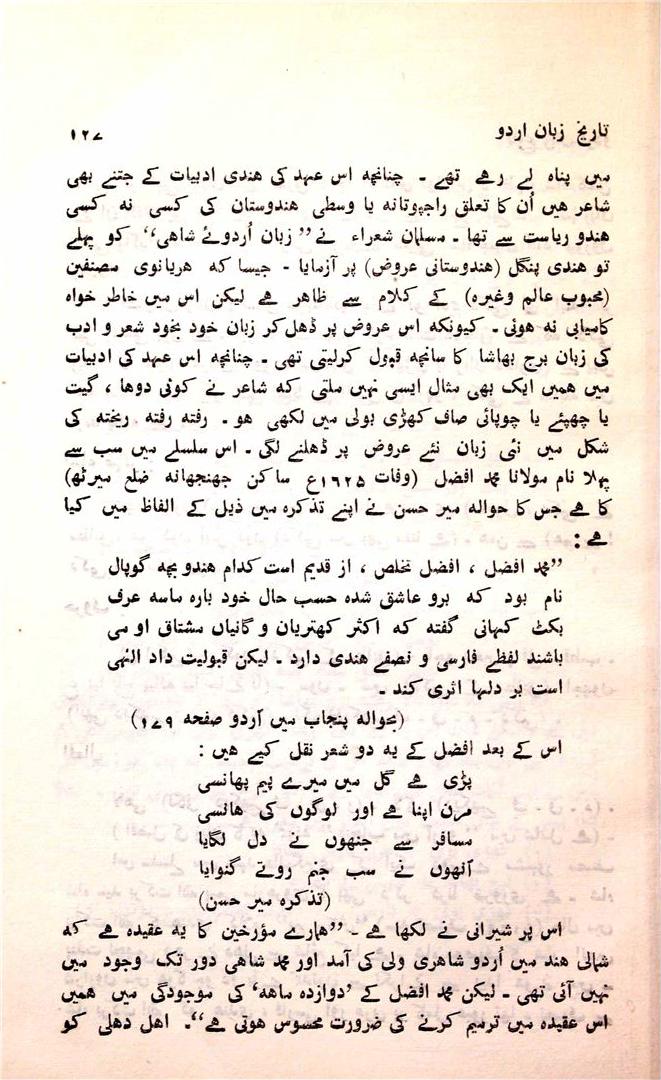 تاریخ زبان اردو ۱۲۷
میں پناہ لے رہے تھے ۔ چنانچہ اس عہد کی ہندی ادبیات کے جتنے بھی
شاعر ہیں اُن کا تعلق راجپوتانہ یا وسطی ہندوستان کی کسی نہ کسی
ہندو ریاست سے تھا ۔ مسلمان شعراء نے ’’ زبان اُردوئے شاہی‘‘ کو پہلے
تو ہندی پنگل (ہندوستانی عروض) پر آزمایا ۔ جیسا کہ ہریانوی مصنفین
(محبوب عالم وغیرہ) کے کلام سے ظاہر ہے لیکن اس میں خاطر خواہ
کامیابی نہ ہوئی ۔ کیونکہ اس عروض پر ڈھل کر زبان خود بخود شعر و ادب
کی زبان برج بھاشا کا سانچہ قبول کرلیتی تھی ۔ چنانچہ اس عہد کی ادبیات
میں ہمیں ایک بھی مثال ایسی نہیں ملتی کہ شاعر نے کوئی دوہا ، گیت
یا چھپئے یا چوپائی صاف کھڑی بولی میں لکھی ہو ۔ رفتہ رفتہ ریختہ کی
شکل میں نئی زبان نئے عروض پر ڈھلنے لگی ۔ اس سلسلے میں سب سے
پہلا نام مولانا محمد افضل (وفات ۱۶۲۵ع ساکن جھنجھانہ ضلع میرٹھ)
کا ہے جس کا حوالہ میر حسن نے اپنے تذکرہ میں ذیل کے الفاظ میں کیا
ہے :
’’محمد افضل ، افضل تخلص ، از قدیم است کدام ہندو بچہ گوپال
نام بود کہ برو عاشق شدہ حسب حال خود بارہ ماسہ عرف
بکٹ کہانی گفتہ کہ اکثر کھتریان و گانیاں مشتاق او می
باشند لفظے فارسی و نصفے ہندی دارد ۔ لیکن قبولیت داد الٰہی
است بر دلہا اثری کند ۔
(بحوالہ پنجاب میں اُردو صفحہ ۱۷۹)
اس کے بعد افضل کے یہ دو شعر نقل کیے ہیں :
پڑی ہے گل میں میرے پیم پھانسی
مرن اپنا ہے اور لوگوں کی ہانسی
مسافر سے جنھوں نے دل لگایا
اُنھوں نے سب جنم روتے گنوایا
(تذکرہ میر حسن)
اس پر شیرانی نے لکھا ہے ۔ ’’ہمارے مؤرخین کا یہ عقیدہ ہے کہ
شمالی ہند میں اُردو شاعری ولی کی آمد اور محمد شاہی دور تک وجود میں
نہیں آئی تھی ۔ لیکن محمد افضل کے ’دوازدہ ماہہ‘ کی موجودگی میں ہمیں
اس عقیدہ میں ترمیم کرنے کی ضرورت محسوس ہوتی ہے‘‘ ۔ اہل دہلی کو